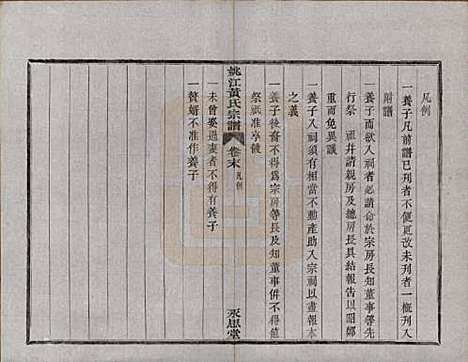 凡例
一養子凡前譜已列者不便更改未列者一概列入
附譜
一養子而欲入祠者必請命於宗房長知董事等先
行祭祖并請親房及總房長具結報告以昭鄭
重而免異議
一養子入祠須有相當不動產助入宗祠以盡報本
之義
一養子後裔不得爲宗房等長及知董事併不得與
祭祇准享餕
姚江黃氏宗譜 卷末 凡例
永思堂
一未曾娶過妻者不得有養子
一贅婿不准作養子